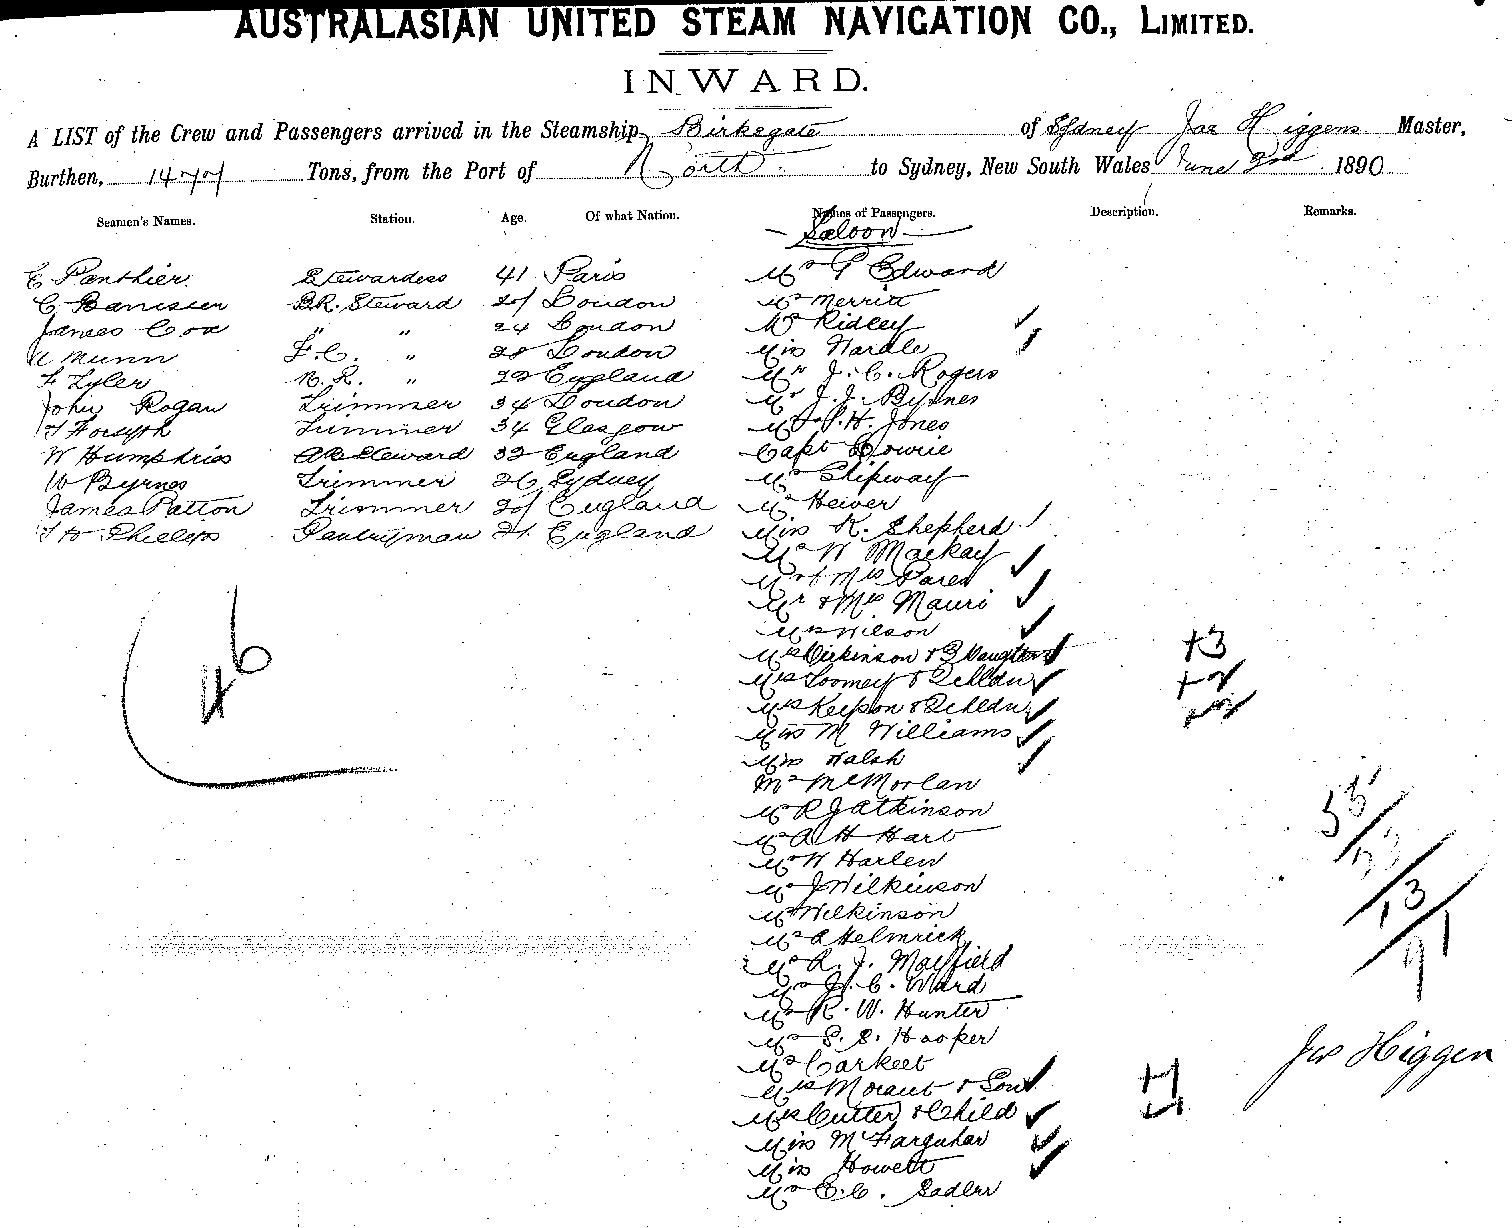 AUSTRALASIAN UNITED STEAM NAVIGATION CO., LIMITED.
INWARD.
A LIST of the Crew and Passengers arrived in the Steamship Birkegate of Sydney Jas Higgens Master,
Burthen, 1477 Tons, from the Port of North to Sydney, New South Wales June 2nd 1890
Seamen's Names. Station. Age. Of what Nation. Names of Passengers. Description. Remarks.
Saloon
E Panthier Stewardess 41 Paris
C Bannister B.R. Steward London
James Cox " " 24 London
Munn F.C. " 28 London
F Tyler " 22 England
John Rogan Trimmer 34 London
T Forsyth Trimmer 34 Glasgow
W Humphries Steward 32 England
W Byrnes Trimmer 26 Sydney
James Patton Trimmer England
Pantryman 21 England
46
Mr P Edward
Mr Merritt
Mr Ridley
Miss Wardle
Mr J. C. Rogers
Mr J. J. Byrnes
H. Jones
Capt Howrie
Mr Shipway
Mr Heiver
Miss K. Shepherd
Mr W Mackay
Mr & Mrs Pares
Mr & Mrs Mauri
Mrs Wilson
Mrs Dickinson & 3 Daughters +3
Mrs Toomey & 2 Chldn +2
Mrs Keepson & 2 Chldn
Miss M Williams
Miss Walsh
Mr McMorlan
Mr R J Atkinson
Mr A H Hart
Mr W Harlen
Mr J Wilkinson
Mr Wilkinson
Mr A Helmrick
Mr R. J. Mayfield
C. Ward
Mr R. W. Hunter
Mr S. S. Hooker
Mr Carkeet
Mrs Morant & Son
Mrs Cutter & Child
Miss M Farquhar
Miss Howett
Mr E. C. Sadler
55
23
13
91
Jas Higgen